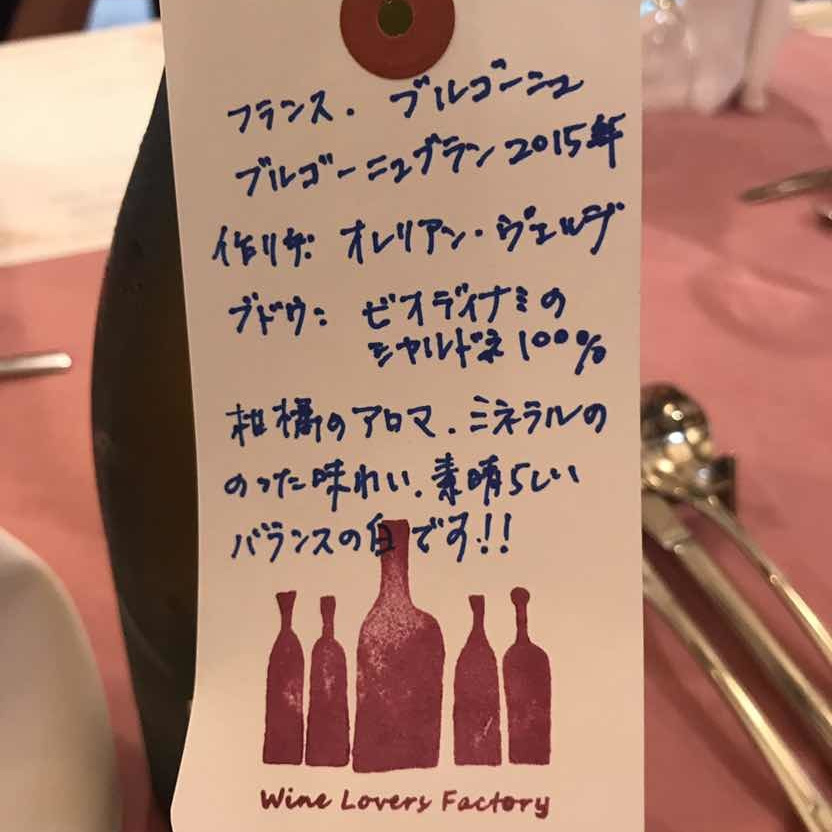 フランス. ブルゴーニュ
ブルゴーニュブラン 2015年
作り手: オレリアン・ヴェルデ
ブドウ: ビオディナミの
シャルドネ 100%
柑橘のアロマ. ミネラルの
のった味わい. 素晴らしい
バランスの白です!!
Wine Lovers Factory